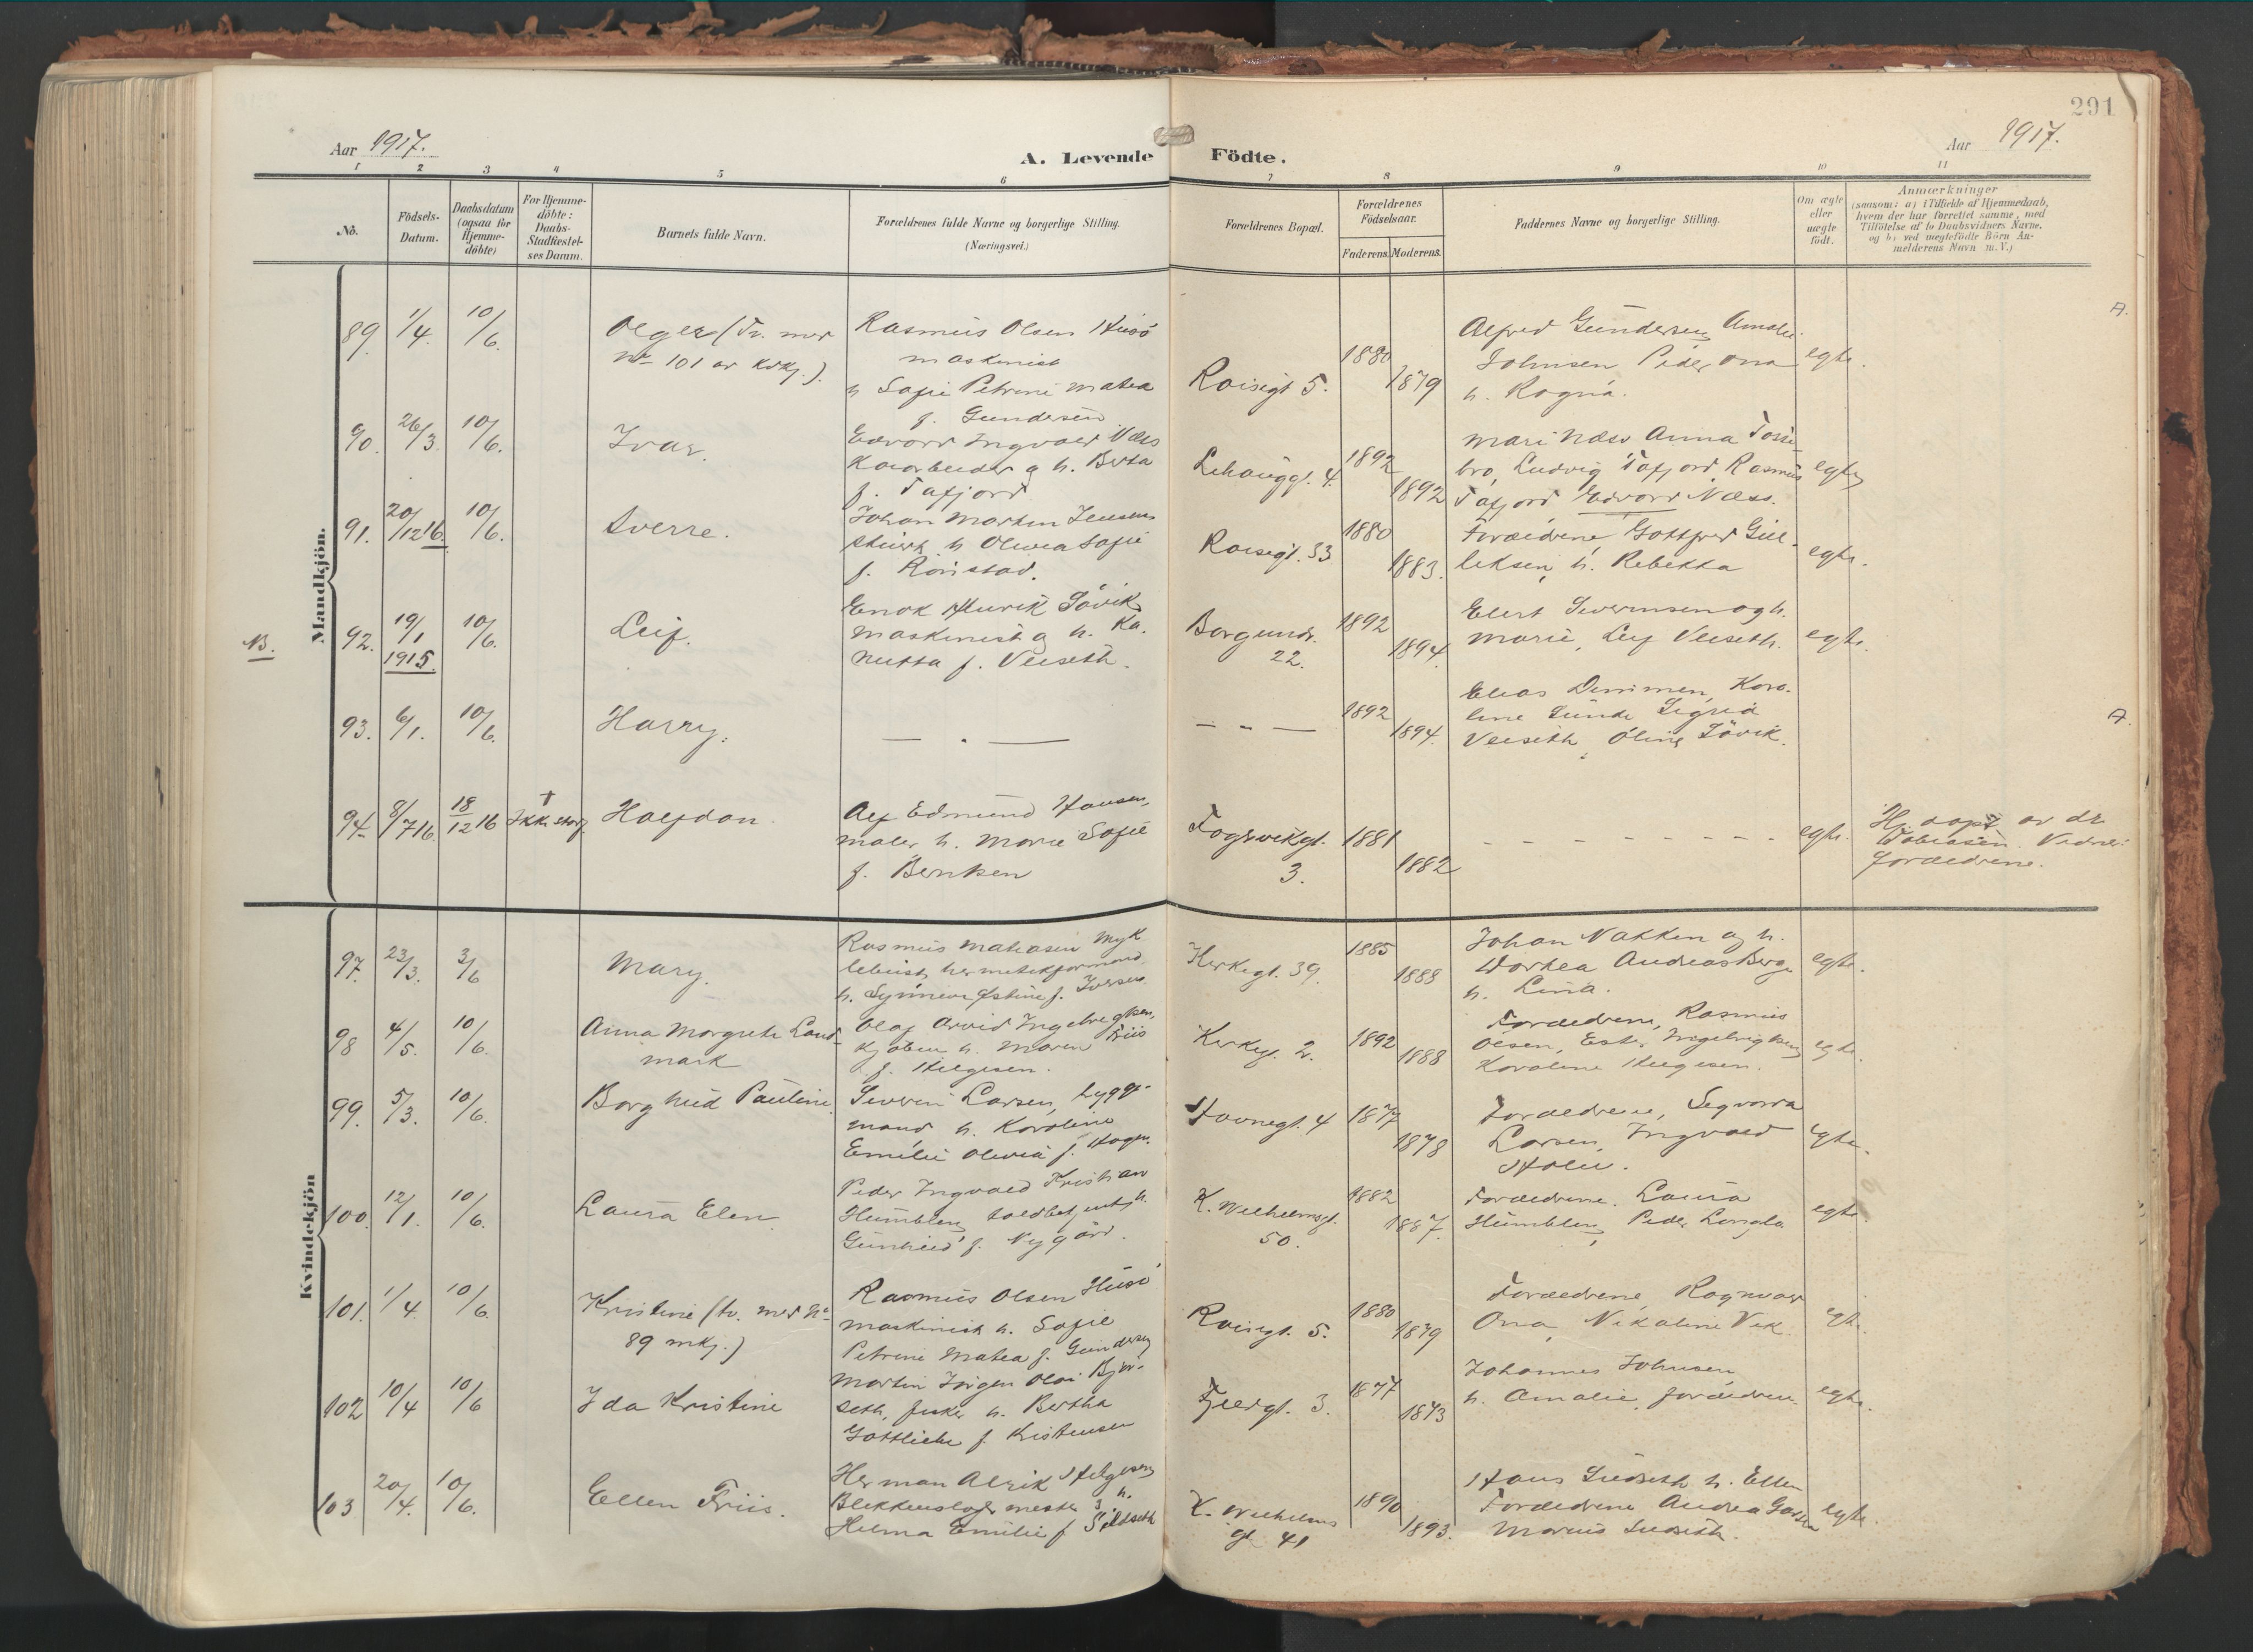 291
Aar 1917.
A. Levende Födte.
Aar 1917.
1 2 3 4 5 6 7 8 9 10 11
No.
Födsels-
Datum.
Daabsdatum
(ogsaa for
Hjemme-
döbte)
For Hjemme-
döbte:
Daabs-
Stadfæstel-
ses Datum.
Barnets fulde Navn.
Forældrenes fulde Navne og borgerlige Stilling.
(Næringsvei.)
Forældrenes Bopæl.
Forældrenes
Födselsaar.
Faderens. Moderens.
Faddernes Navne og borgerlige Stilling.
Om ægte
eller
uægte
födt.
Anmærkninger
(saasom: a) i Tilfælde af Hjemmedaab,
hvem der har forrettet samme, med
Tilföielse af to Daabsvidners Navne,
og b) ved uægtefödte Börn An-
melderens Navn m. V.)
Mandkjön.
89. 1/4. 10/6.
Olger (Tv. med
No 101 av kvkj.).
Rasmus Olsen Husö
maskinist
h Sofie Petrine Matea
f. Gundersen
Roisegt 5.
1880 1879
Alfred Gundersen Amalie
Johnsen Peder Ona
h. Ragna.
egte.
A.
90. 26/3. 10/6.
Ivar.
Edvard Ingvald Næss
Kaiarbeider og h. Berta
f. Tafjord
Lihauggt. 4.
1892 1892
Mari Næss Anna
bro, Ludvig Tafjord, Rasmus
Tafjord Edvard Næss.
egte
91. 20/12 16. 10/6.
Sverre.
Johan Martin Jensen
h Olivia Sofie
f. Rönstad.
Roisegt. 33
1880 1883.
Forældrene Gottfred Gul-
leksen, h. Rebekka
egte.
NB.
92. 19/1 1915. 10/6.
Leif.
Enok Henrik Sövik
maskinist og h. Ka.
nutta f. Veiseth.
Borgundv.
22.
1892 1894.
Elert Severinsen og h.
Marie, Leif Veiseth.
egte.
93. 6/1. 10/6.
Harry.
— . —
— - —
1892 1894.
Elias Dimmen, Karo-
line Sunde Sigrid
Veiseth, Oline Sövik.
A.
94. 8/7 16 18/12 16 † Ikke stadf.
Halfdan.
Alf Edmund Hansen,
maler h. Marie Sofie
f. Bentsen
Fogsvikgt.
3.
1881 1882
- - - - - - -
egte.
Hj. döpt av dr
Tobiasen. Vidner:
Forældrene.
Kvindekjön
97. 23/3. 3/6
Mary.
Rasmus Matiasen Myk
lebust, hermetikformand
h. Synneve Østine f. Iversen
Kirkegt. 39.
1885 1888
Johan Nakken og h.
Dorthea Andreas Berge
h. Lina.
egte.
98 4/5. 10/6.
Anna Margrethe Land-
mark
Olaf Arvid Ingebrigtsen,
kjöbm. h. Maren Friis
f. Helgesen.
Kirkegt. 2.
1892 1888
Forældrene, Rasmus
Olsen, Ester Ingebrigtsen
Karoline Helgesen.
egte.
99. 5/3. 10/6.
Borghild Pauline
Severin Larsen, brygge-
mand h. Karoline
Emilie Olivia f. Hagen.
Havnegt. 4
1877 1878
Forældrene, Segvarda
Larsen, Ingvald
Holm.
egte.
100. 12/1. 10/6.
Laura Elen
Peder Ingvald Kristian
Humblen, toldbetjent h.
Gunhild f. Nygård.
K. Wilhelmsgt.
50.
1882 1887.
Forældrene. Laura
Humblen, Peder Longva
egte.
101. 1/4. 10/6.
Kristine (tv. med No
89 mkj.)
Rasmus Olsen Husö
maskinist h. Sofie
Petrine Matea f. Gundersen
Roisegt. 5.
1880 1879
Forældrene, Ragnvald
Ona, Nikoline Vik.
egte.
102 10/4 10/6
Ida Kristine
Martin Jörgen Olai Björ-
seth, fisker h. Bertha
Gottliebe f. Kristensen
Fjeldgt. 3.
1877 1873
Johannes Johnsen
h. Amalie, forældrene.
egte.
103 20/4. 10/6.
Ellen Friis.
Herman Alrik Helgesen
Blikkenslagermester h.
Helma Emilie f Sildseth
K. Wilhelms
gt 41
1890 1893.
Hans Sildseth h. Ellen
Forældrene Andrea
Marius Sildseth.
egte.